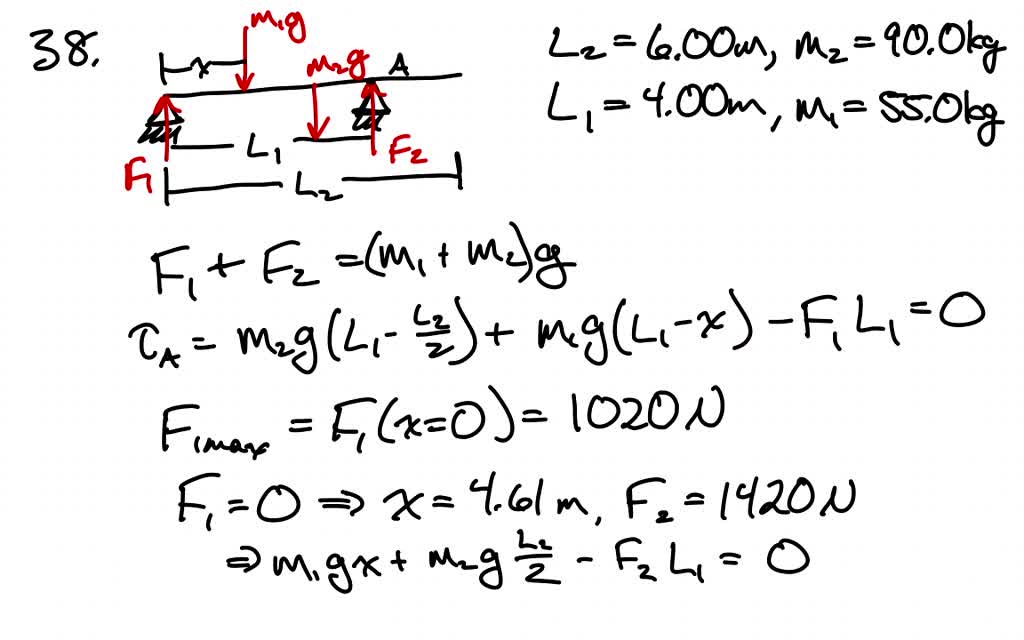 38.
m₁g
x
m₂g A
L₁
F₁ F₂
L₂
L₂ = 6.00m, m₂ = 90.0kg
L₁ = 4.00m, m₁ = 55.0kg
F₁ + F₂ = (m₁ + m₂)g
τ_A = m₂g(L₁ - L₂/2) + m₁g(L₁ - x) - F₁L₁ = 0
F₁max = F₁(x=0) = 1020N
F₁ = 0 ⇒ x = 4.61m, F₂ = 1420N
⇒ m₁gx + m₂g L₂/2 - F₂L₁ = 0